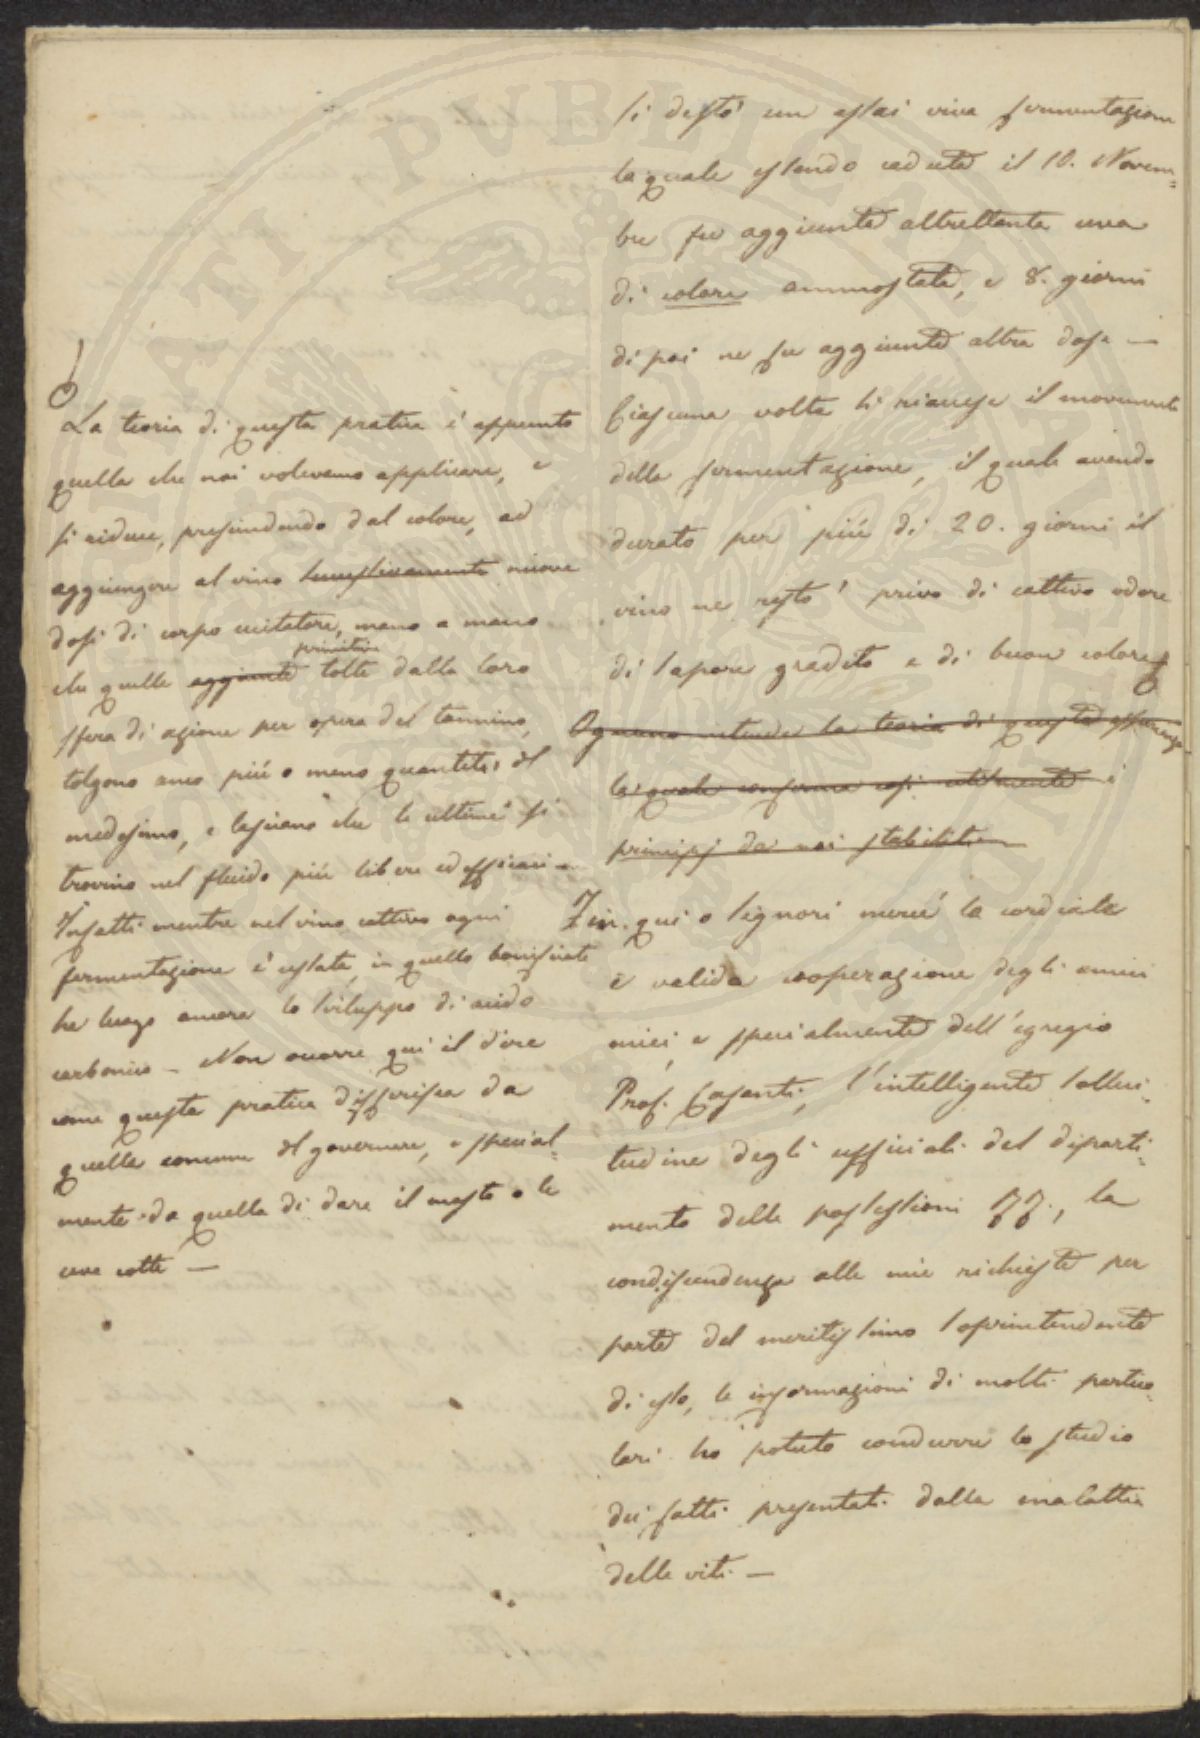 si destò una assai viva fermentazione
la quale essendo cedute il 10. Novem=
bre fu aggiunta altrettanta uva
di colore ammostata, e 8. giorni
di poi ne fu aggiunta altra dose —
Ciascuna volta si riaccese il movimento
della fermentazione, il quale avendo
durato per più di 20. giorni il
vino ne restò privo di cattivo odore
di sapore gradito e di buon colore
Ognuno intende la teoria di questa esperienza
la quale conferma così utilmente i
principj da noi stabiliti —
Fin qui o Signori mercè la cordiale
e valida cooperazione degli amici
miei, e specialmente dell'egregio
Prof. Casanti, l'intelligente solleci=
tudine degli ufficiali del diparti=
mento delle possessioni RR., la
condiscendenza alle mie richieste per
parte del meritissimo soprintendente
di esso, le informazioni di molti partico=
lari ho potuto condurre lo studio
dei fatti presentati dalla malattia
delle viti —
La teoria di questa pratica è appunto
quella che noi volevamo applicare, e
si riduce, prescindendo dal colore, ad
aggiungere al vino successivamente nuove
dosi di corpo eccitatore, mano a mano
primitive
che quelle aggiunte tolte dalla loro
sfera di azione per opera del tannino,
tolgono anco più o meno quantità del
medesimo, e lasciano che le ultime si
trovino nel fluido più libere ed efficaci —
Infatti mentre nel vino cattivo ogni
fermentazione è cessata, in quello bonificato
ha luogo ancora lo sviluppo di acido
carbonico — Non occorre qui il dire
come questa pratica differisca da
quella comune del governare, e special=
mente da quella di dare il mosto o le
uve cotte —